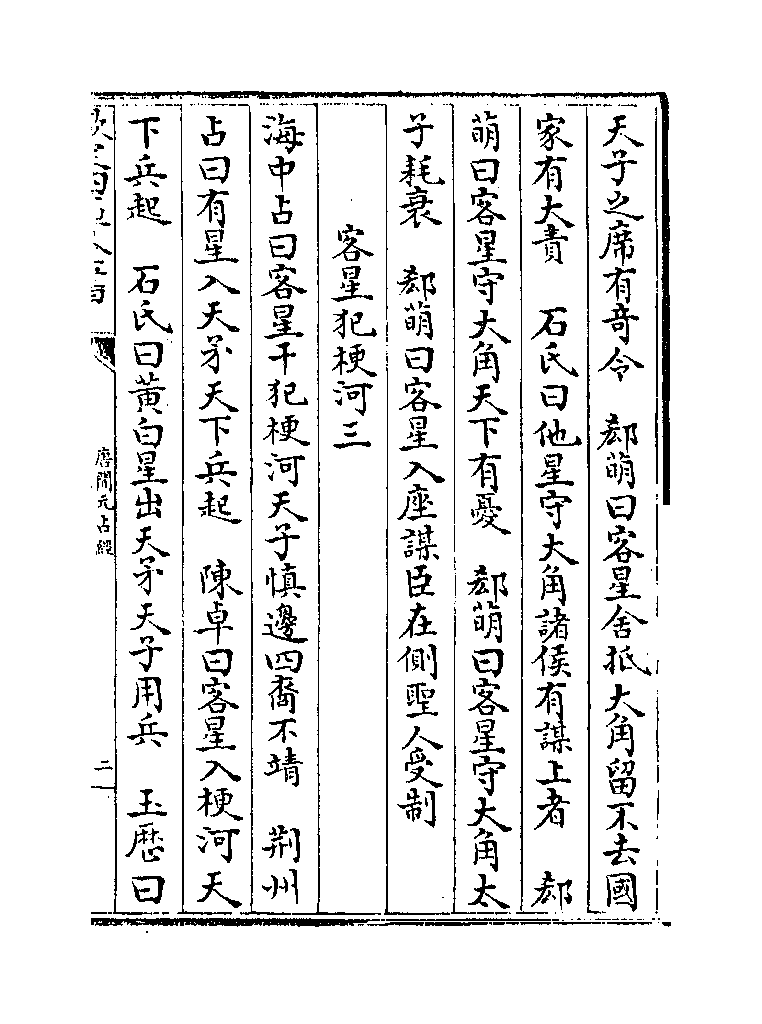 天子之席有奇令　郗萌曰客星舍抵大角留不去國
家有大責　石氏曰他星守大角諸侯有謀上者　郗
萌曰客星守大角天下有憂　郗萌曰客星守大角太
子耗衰　郗萌曰客星入座謀臣在側聖人受制
客星犯梗河三
海中占曰客星干犯梗河天子慎邊四裔不靖　荆州
占曰有星入天矛天下兵起　陳卓曰客星入梗河天
下兵起　石氏曰黄白星出天矛天子用兵　玉厯曰
欽定四庫全書
唐開元占經
二